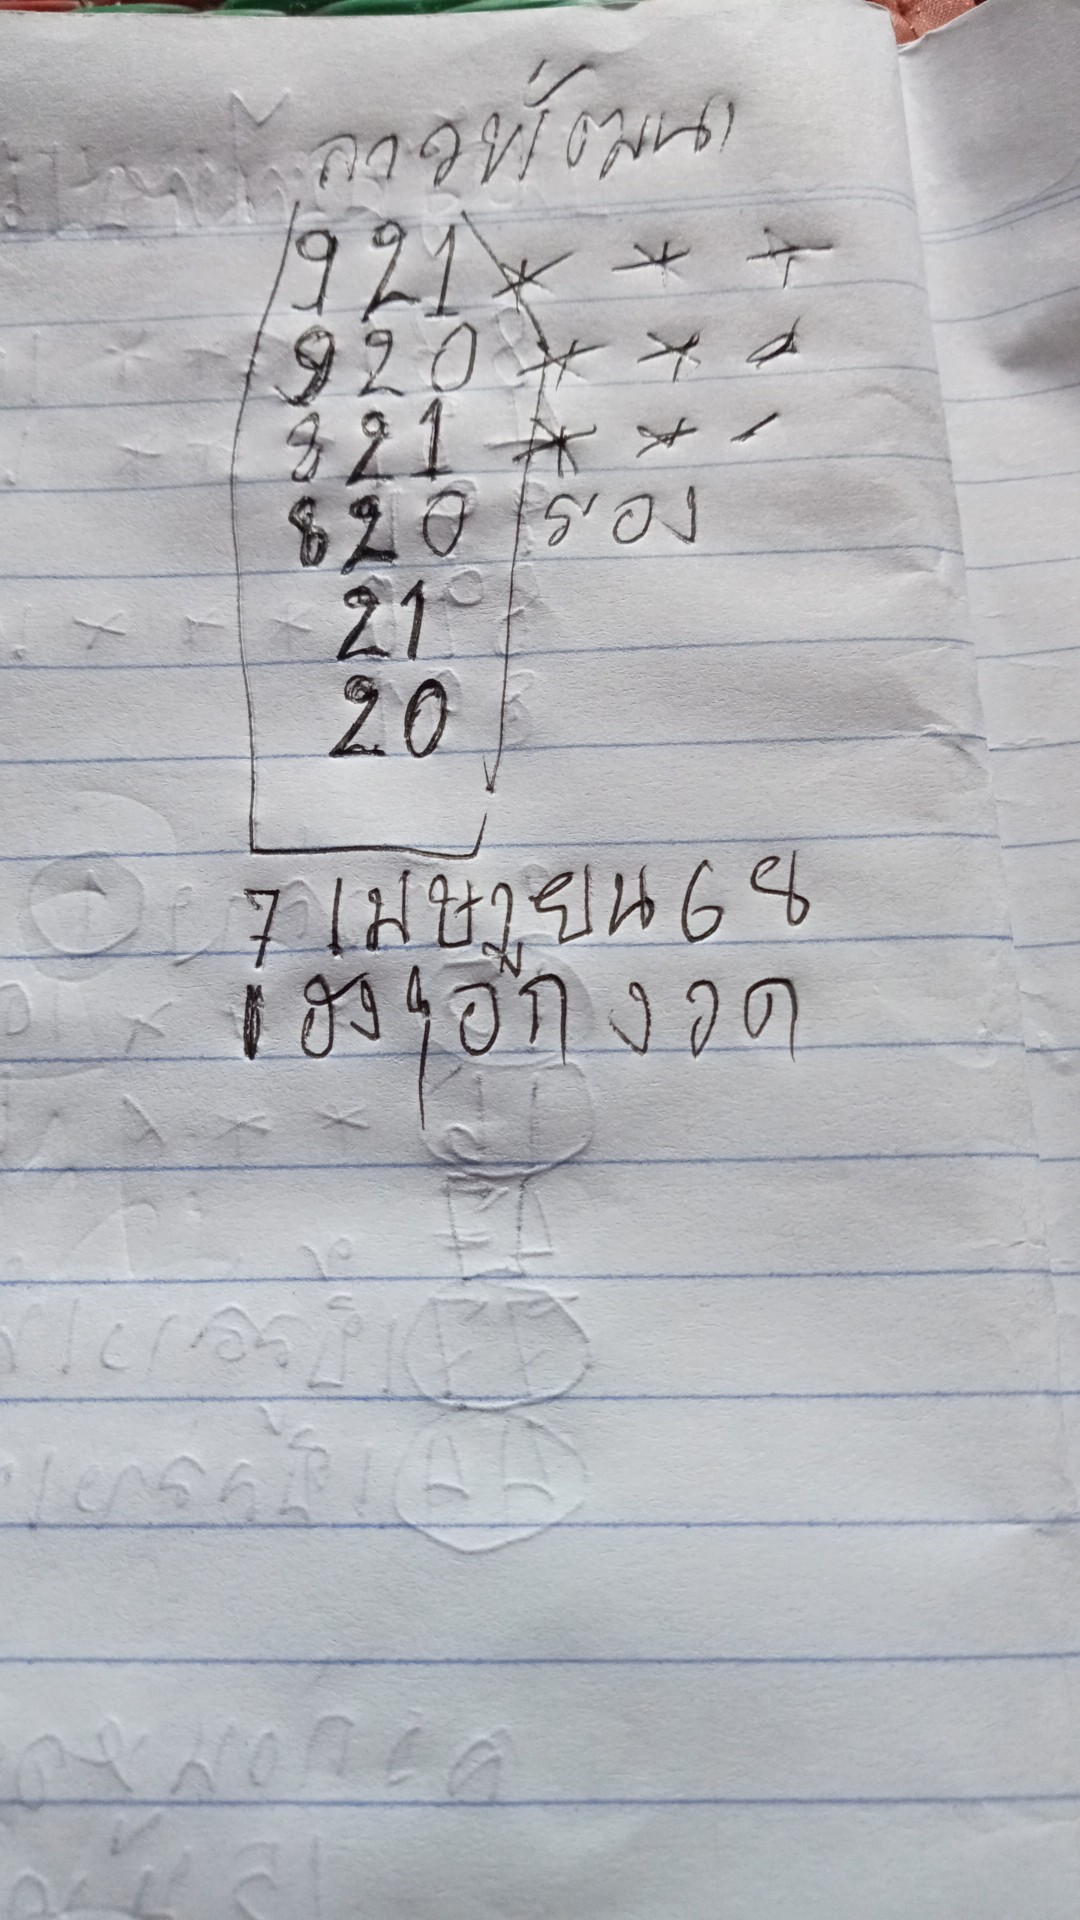 ลาวพัฒนา
921 * * *
920 * *
821 * *
820 รอง
21
20
7 เมษายน 68
เฮงๆอีก งวด